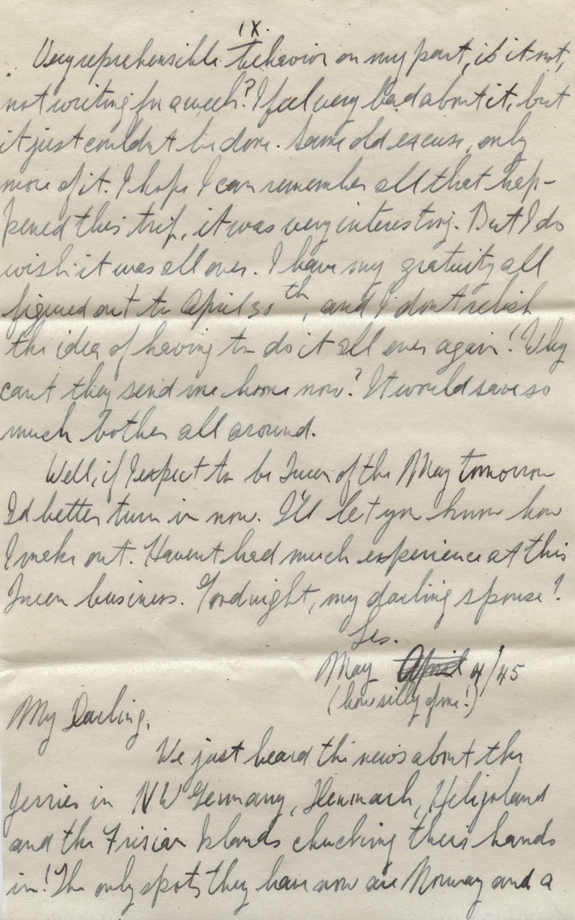 IX.
Very reprehensible behavior on my part, is it not,
not writing for a week? I feel very bad about it, but
it just couldn't be done. Same old excuse, only
more of it. I hope I can remember all that hap-
pened this trip, it was very interesting. But I do
wish it was all over. I have my gratuity all
figured out to April 30th, and I don't relish
the idea of having to do it all over again! Why
can't they send me home now? It would save so
much bother all around.
Well, if I expect to be Queen of the May tomorrow
I'd better turn in now. I'll let you know how
I make out. Havent had much experience at this
Queen business. Goodnight, my darling spouse!
Les.
May April 4/45
(how silly of me!)
My Darling,
We just heard the news about the
Jerries in NW Germany, Denmark, Heligoland
and the Frisian Islands chucking their hands
in! The only spots they have now are Norway and a